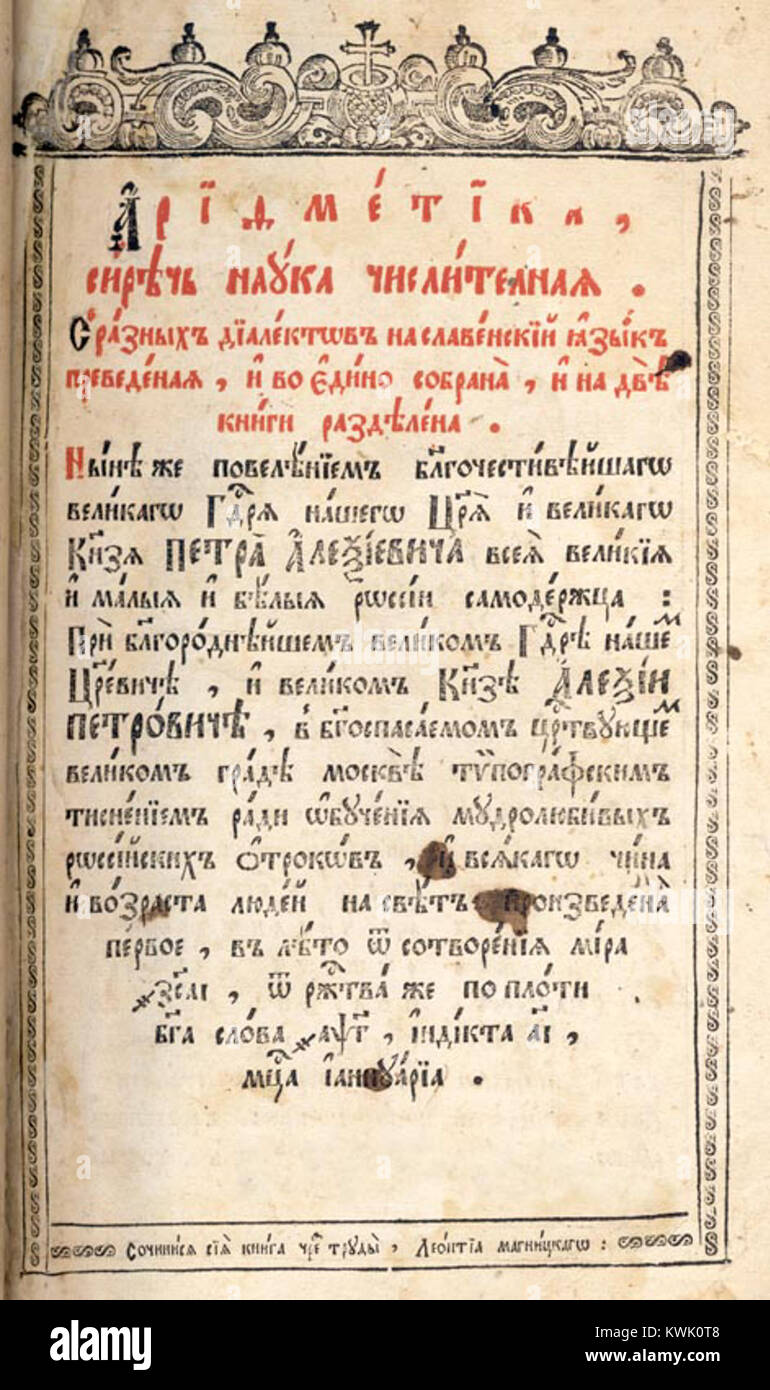 Арїѳме́тїка,
сирѣ́чь наѹ́ка числи́телная.
С̾ ра́зныхъ дїале́ктѡвъ на славе́нскїй ѧ҆зы́къ
преведе́ная, и҆ во є҆ди́но собрана̀, и҆ на двѣ̀
кни́ги раздѣле́на.
Ны́нѣ же повелѣ́нїемъ бл҃гочести́вѣйшагѡ
вели́кагѡ Гдⷭ҇рѧ на́шегѡ Цр҃ѧ̀ и҆ вели́кагѡ
Кн҃зѧ ПЕТРА̀ А҆ЛЕѮІЕВИЧА всеѧ̀ вели́кїѧ
и҆ ма́лыѧ и҆ бѣ́лыѧ рѡссі́и самоде́ржца :
Прѝ бл҃горо́днѣйшемъ вели́комъ Гдⷭ҇рѣ на́шеⷨ
Цр҃е́вичѣ, и҆ вели́комъ Кн҃зѣ А҆ЛЕѮІИ
ПЕТРО́ВИЧѢ, в̾ бг҃оспаса́емомъ црⷭ҇твꙋющеⷨ
вели́комъ гра́дѣ москвѣ̀ тѷпогра́фскимъ
тисне́нїемъ ра́ди ѡ҆бꙋче́нїѧ мꙋдролюби́выхъ
рѡссі́йскихъ ѻ҆́трокѡвъ, и҆ всѧ́кагѡ чи́на
и҆ во́зраста люде́й на свѣ́тъ произведена̀
пе́рвое, въ лѣ́то ѿ сотворе́нїѧ мі́ра
҂зс҃аі, ѿ ржⷭ҇тва̀ же по пло́ти
бг҃а сло́ва ҂аѱ҃г, і҆нді́кта а҃і,
мцⷭ҇а і҆аннꙋа́рїа.
Сочини́сѧ сїѧ̀ кни́га чреⷥ трꙋды̀, Лео́нтїа магни́цкагѡ :
alamy
Image ID: KWK0T8
www.alamy.com